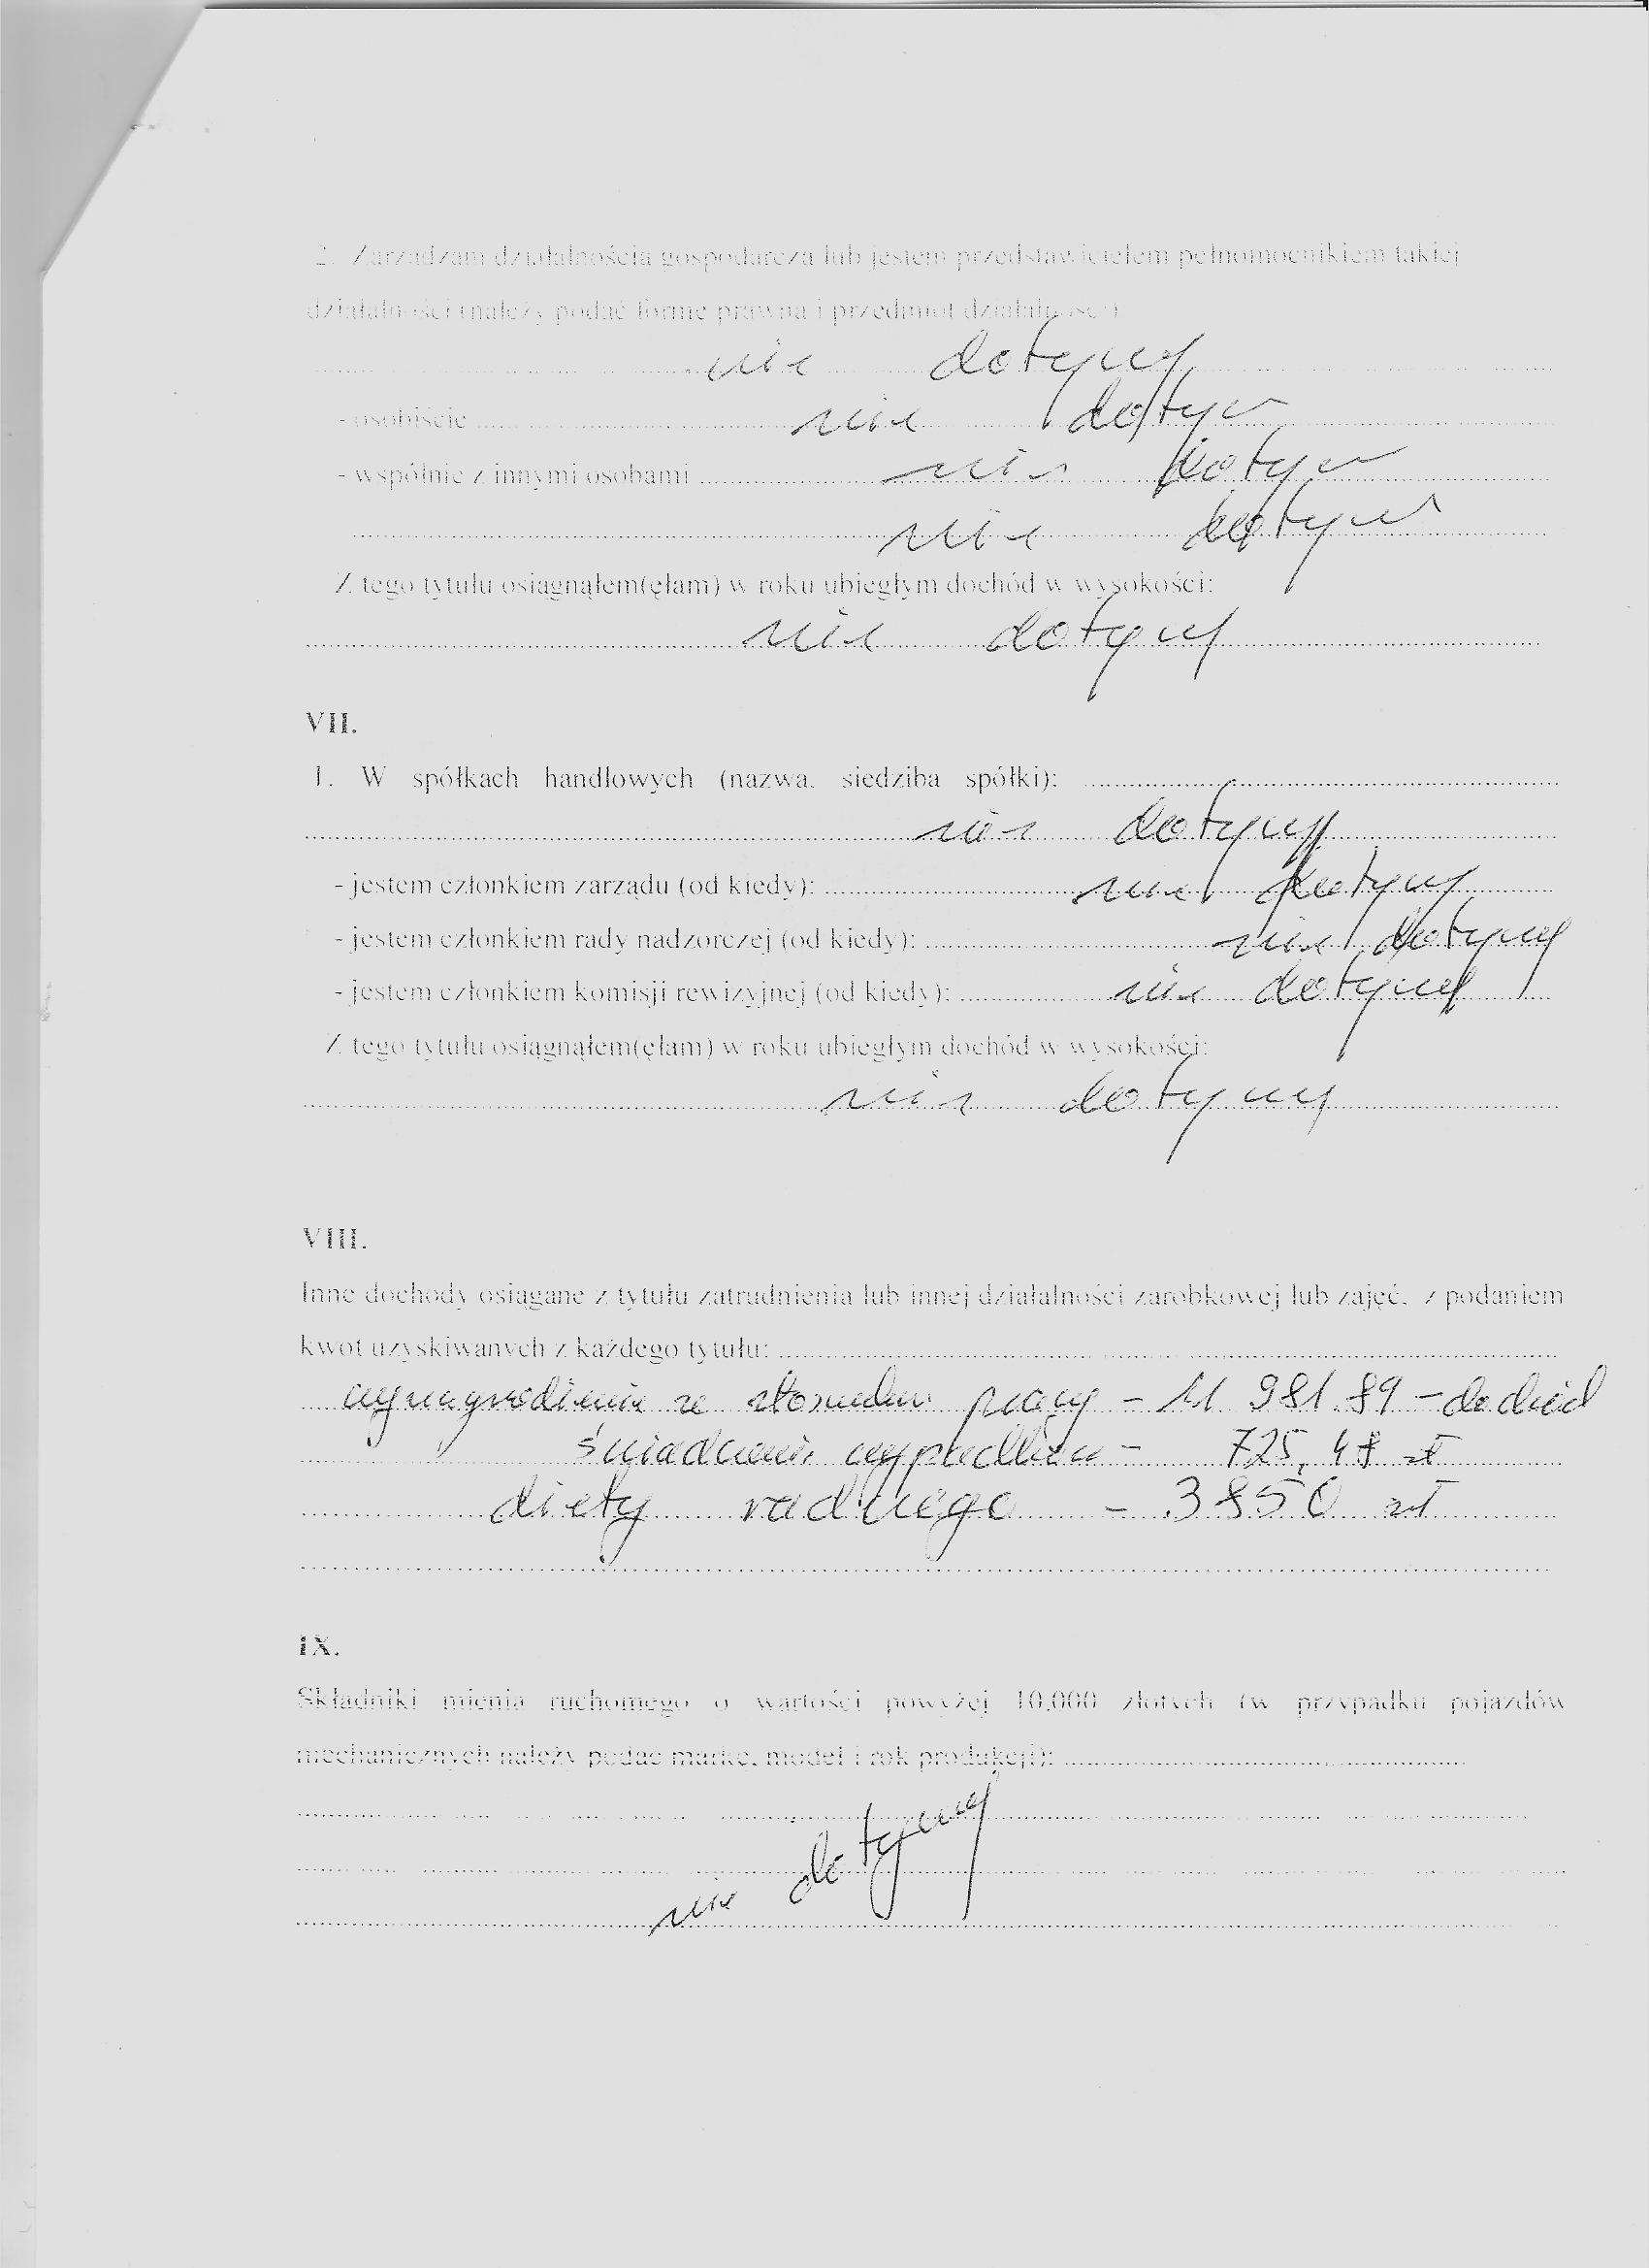 2. Zarządzam działalnością gospodarczą lub jestem przedstawicielem pełnomocnikiem takiej
działalności (należy podać formę prawną i przedmiot działalności):
nie dotyczy
- osobiście nie dotyczy
- wspólnie z innymi osobami nie dotyczy
nie dotyczy
Z tego tytułu osiągnąłem(ęłam) w roku ubiegłym dochód w wysokości:
nie dotyczy
VII.
1. W spółkach handlowych (nazwa, siedziba spółki):
nie dotyczy
- jestem członkiem zarządu (od kiedy): nie dotyczy
- jestem członkiem rady nadzorczej (od kiedy): nie dotyczy
- jestem członkiem komisji rewizyjnej (od kiedy): nie dotyczy
Z tego tytułu osiągnąłem(ęłam) w roku ubiegłym dochód w wysokości:
nie dotyczy
VIII.
Inne dochody osiągane z tytułu zatrudnienia lub innej działalności zarobkowej lub zajęć, z podaniem
kwot uzyskiwanych z każdego tytułu:
wynagrodzenie ze stosunku pracy - 11 981.89 - dochód
świadczenie wypadkowe - 725,48 zł
diety radnego - 3850 zł
IX.
Składniki mienia ruchomego o wartości powyżej 10.000 złotych (w przypadku pojazdów
mechanicznych należy podać markę, model i rok produkcji):
nie dotyczy